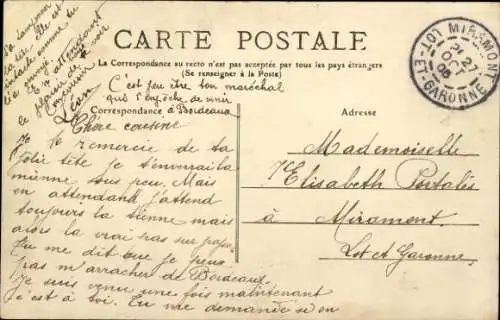 CARTE POSTALE
La Correspondance au recto n'est pas acceptée par tous les pays étrangers
(Se renseigner à la Poste)
C'est peu être ton maréchal
qui t'empêche de venir
à Bordeaux
Correspondance
Adresse
MIRAMONT
LOT-ET-GARONNE
21
27
OCT
Chère cousine
Je te remercie de ta
jolie tête je t'enverrai la
mienne sous peu. Mais
en attendand j'attend
toujours la tienne mais
alors la vrai pas sur papier
Tu me dit que je peus
pas m'arracher de Bordeaux.
Je suis venu une fois maintenant
c'est à toi. Tu me demande si on
la tête elle est
En attendant
le plaisir de
Léon
Mademoiselle
Elisabeth Portalès
à Miramont
Lot et Garonne